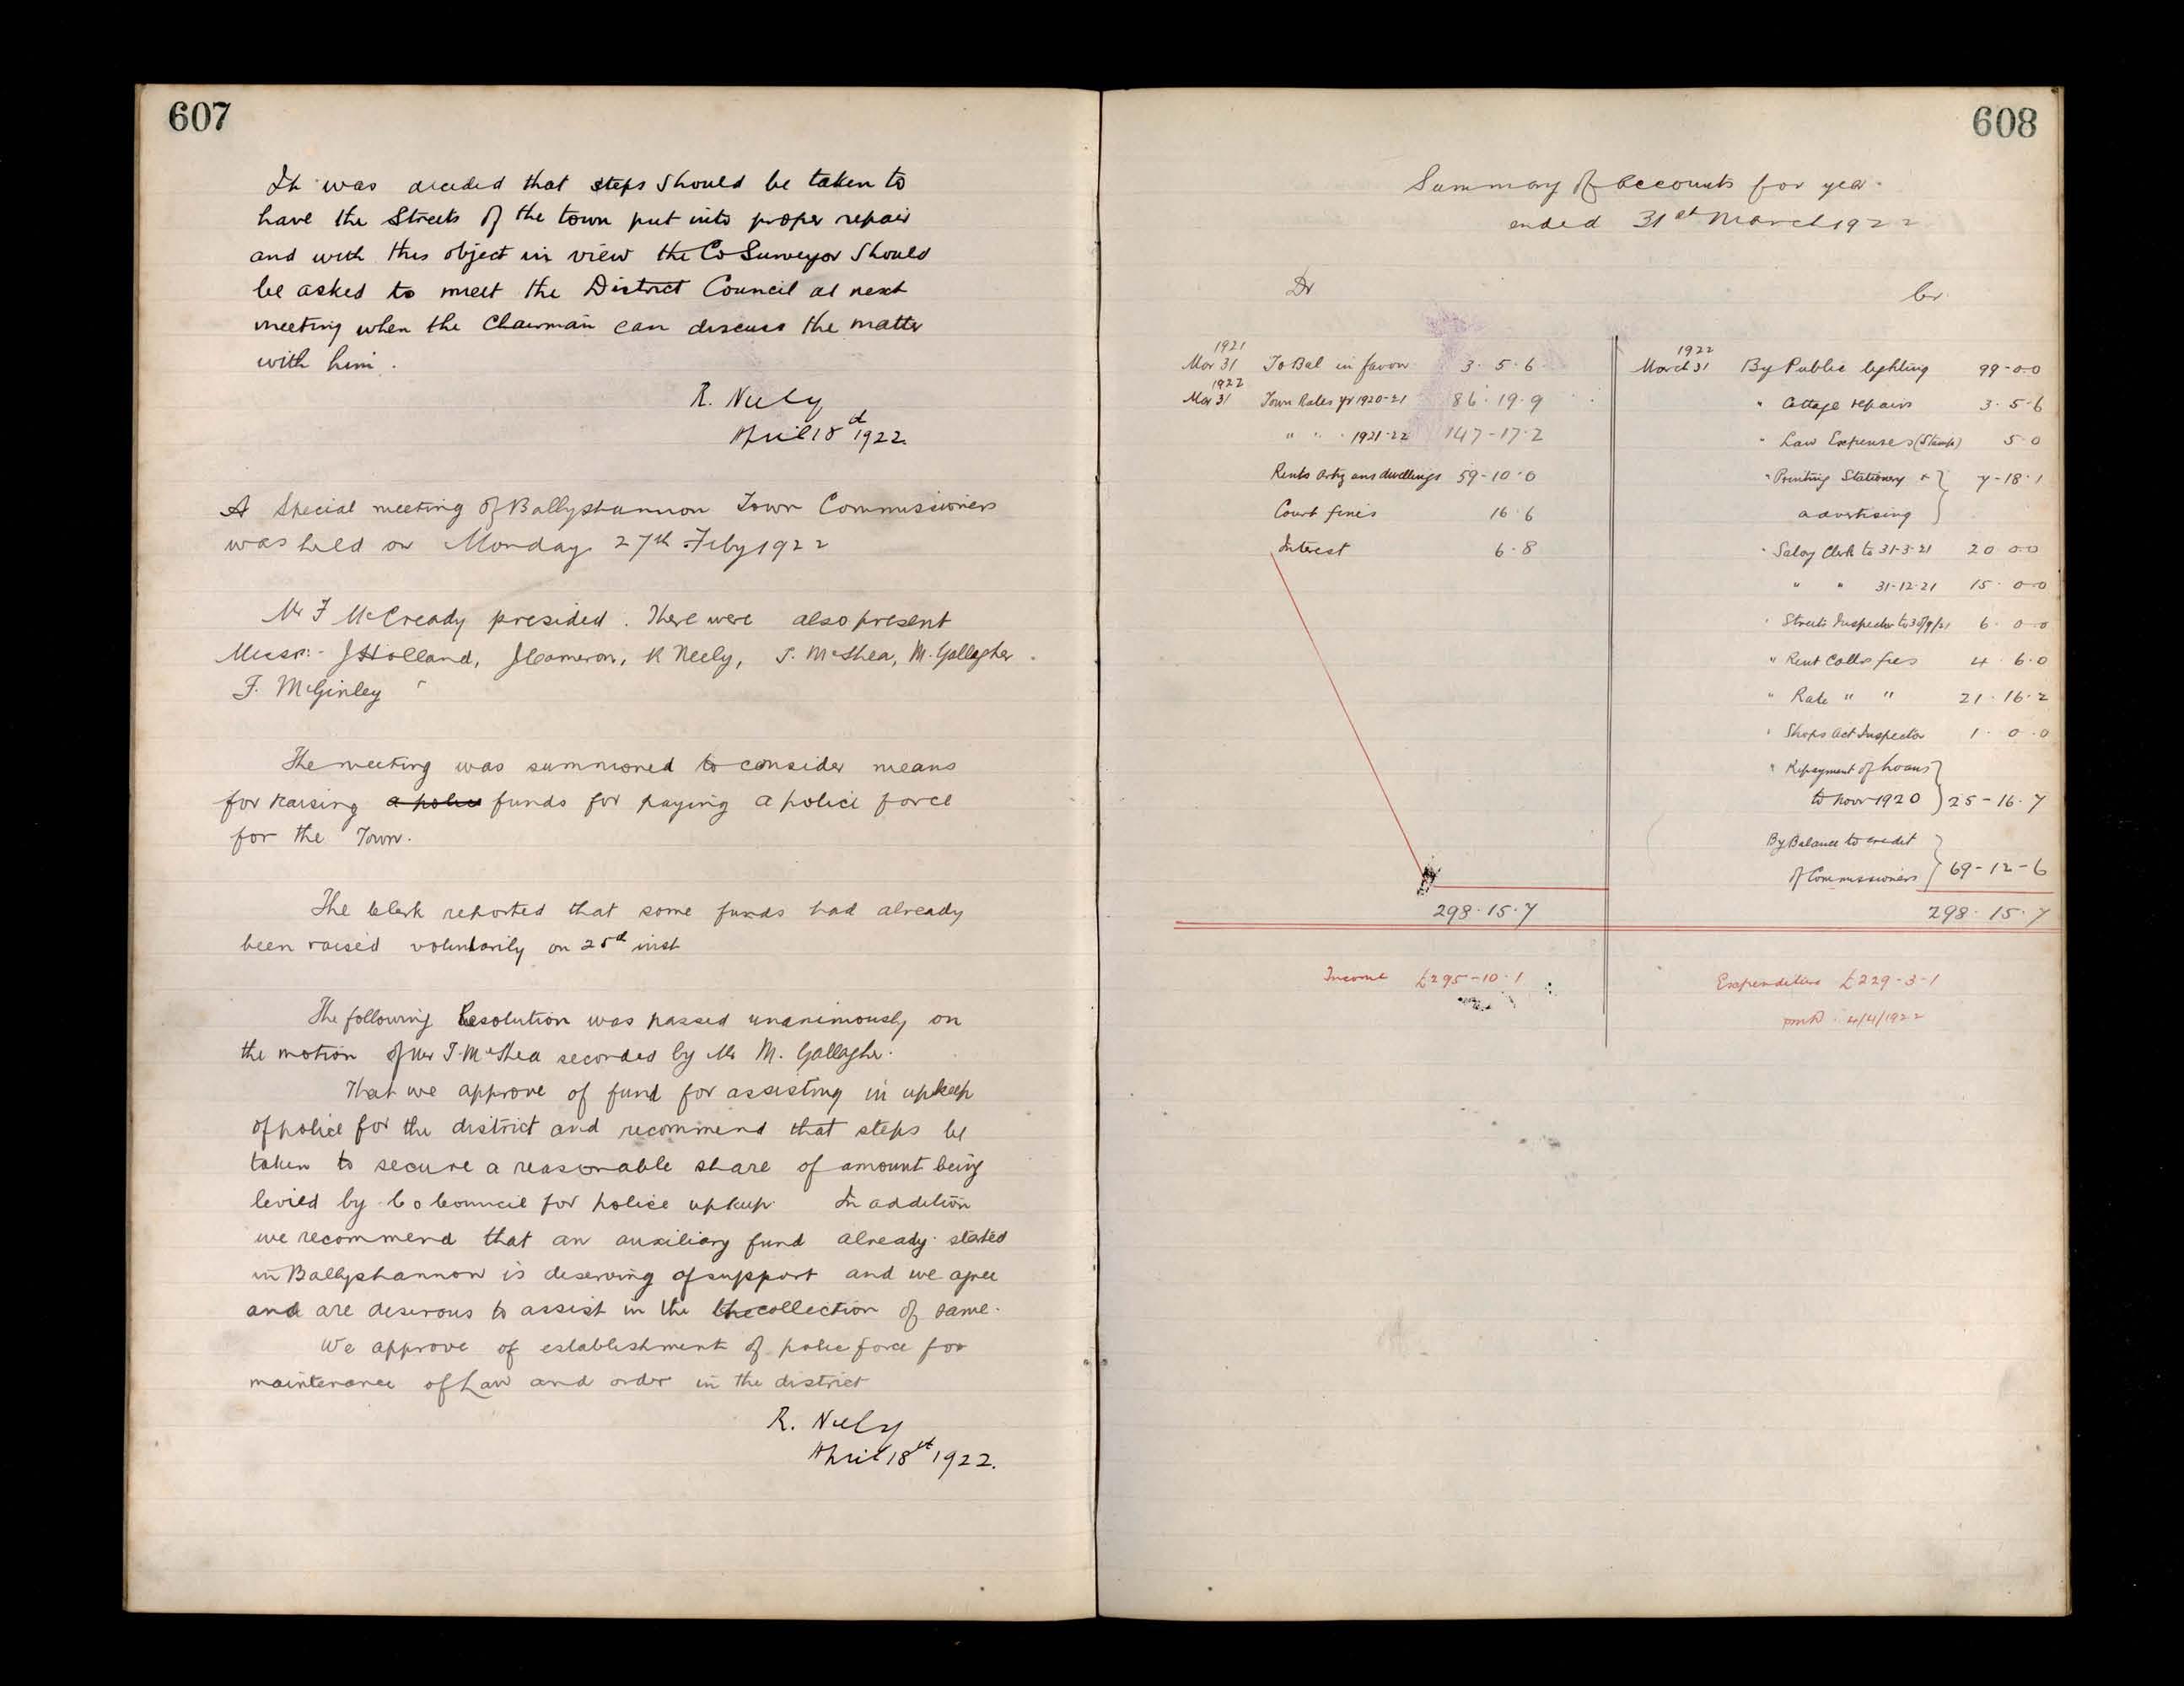 607
It was decided that steps should be taken to
have the Streets of the town put into proper repair
and with this object in view the Co Surveyor should
be asked to meet the District Council at next
meeting when the Chairman can discuss the matter
with him.
R. Neely
April 18th 1922.
A Special meeting of Ballyshannon Town Commissioners
was held on Monday 27th Feby 1922
Mr F McCready presided. There were also present
Messrs- J Holland, J Cameron, R Neely, T. McShea, M. Gallagher
F. McGinley
The meeting was summoned to consider means
for raising a police funds for paying a police force
for the Town.
The Clerk reported that some funds had already
been raised voluntarily on 25th inst
The following Resolution was passed unanimously on
the motion of Mr T. McShea seconded by Mr M. Gallagher.
That we approve of fund for assisting in upkeep
of police for the district and recommend that steps be
taken to secure a reasonable share of amount being
levied by Co Council for police upkeep. In addition
we recommend that an auxiliary fund already started
in Ballyshannon is deserving of support and we agree
and are desirous to assist in the the collection of same.
We approve of establishment of police force for
maintenance of Law and order in the district
R. Neely
April 18th 1922.
608
Summary of Accounts for year
ended 31st March 1922
Dr
Cr
1921
Mar 31 To Bal in favor 3. 5. 6
1922
Mar 31 Town Rates yr 1920-21 86. 19. 9
" " 1921-22 147-17-2
Rents Artizans dwellings 59-10-0
Court fines 16. 6
Interest 6. 8
298. 15. 7
Income £295-10. 1
1922
March 31 By Public lighting 99-0-0
" Cottage repairs 3. 5-6
" Law Expenses (Stamp) 5. 0
" Printing Stationery + } 7-18. 1
advertising
" Salary Clerk to 31-3-21 20 0-0
" " 31-12-21 15. 0-0
" Streets Inspector to 30/9/21 6. 0-0
" Rent Collrs fees 4. 6. 0
" Rate " " 21. 16. 2
" Shops Act Inspector 1. 0. 0
" Repayment of Loans }
to Novr 1920 25-16. 7
By Balance to credit }
of Commissioners 69-12-6
298. 15. 7
Expenditure £229-3-1
4/4/1922